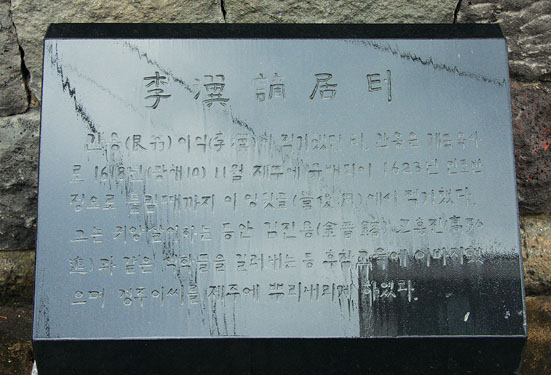 李瀷謫居터
간옹(艮翁) 이익(李瀷)의 적거했던 터. 간옹은 
로 1618년(광해10) 11월 제주에 유배되어 1623년 인조반
정으로 풀릴 때까지 이 (後)에서 적거했다.
그는 귀양살이하는 동안 김진용(金晋鎔)·고홍진(高弘
進)과 같은 을 길러내는 등 후진교육에 이바지했
으며 경주이씨를 제주에 뿌리내리게 하였다.